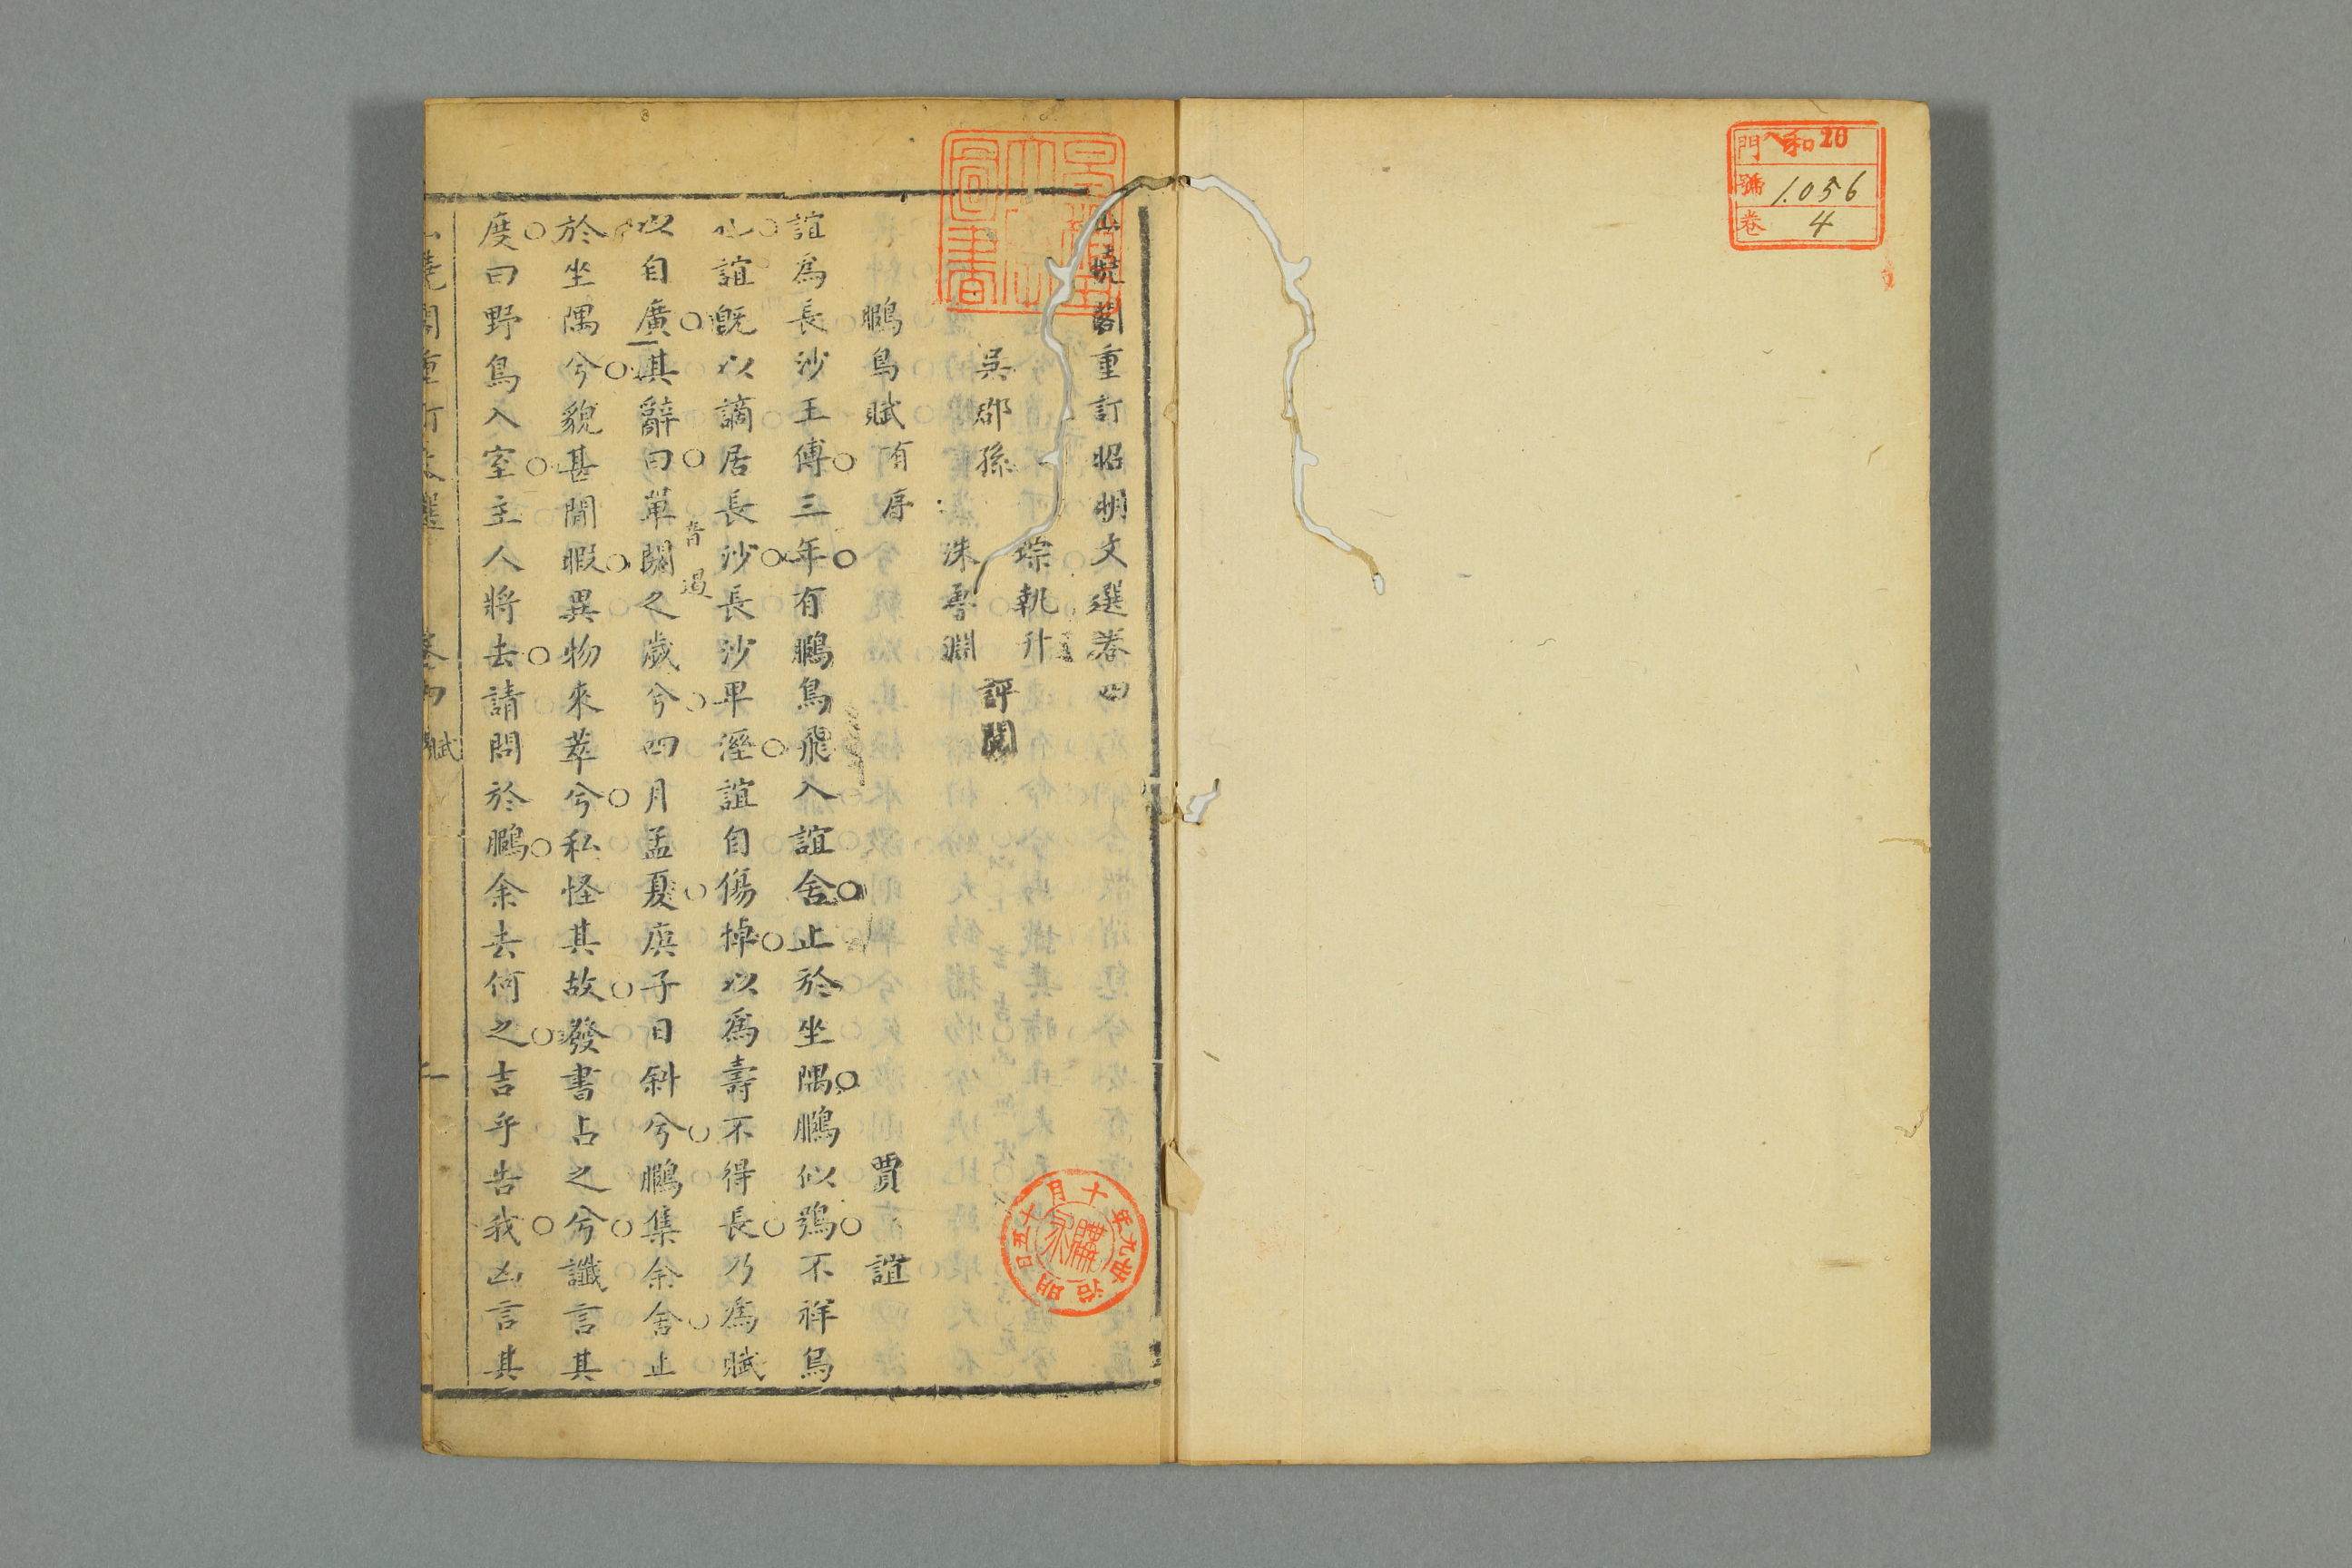 門 ヘ和20
號 1.056
卷 4
山曉閣重訂昭明文選卷四
吳郡孫
琮執升
洙雩淵
評閱
鵩鳥賦有序
賈誼
誼爲長沙王傅三年有鵩鳥飛入誼舍止於坐隅鵩似鴞不祥鳥
也誼旣以謫居長沙長沙卑溼誼自傷悼以爲壽不得長乃爲賦
以自廣其辭曰單閼之歲兮四月孟夏庚子日斜兮鵩集余舍止
音遏
於坐隅兮貌甚閒暇異物來萃兮私怪其故發書占之兮讖言其
度曰野鳥入室主人將去請問於鵩余去何之吉乎告我凶言其
賦
明治廿九年十月十五日
購求